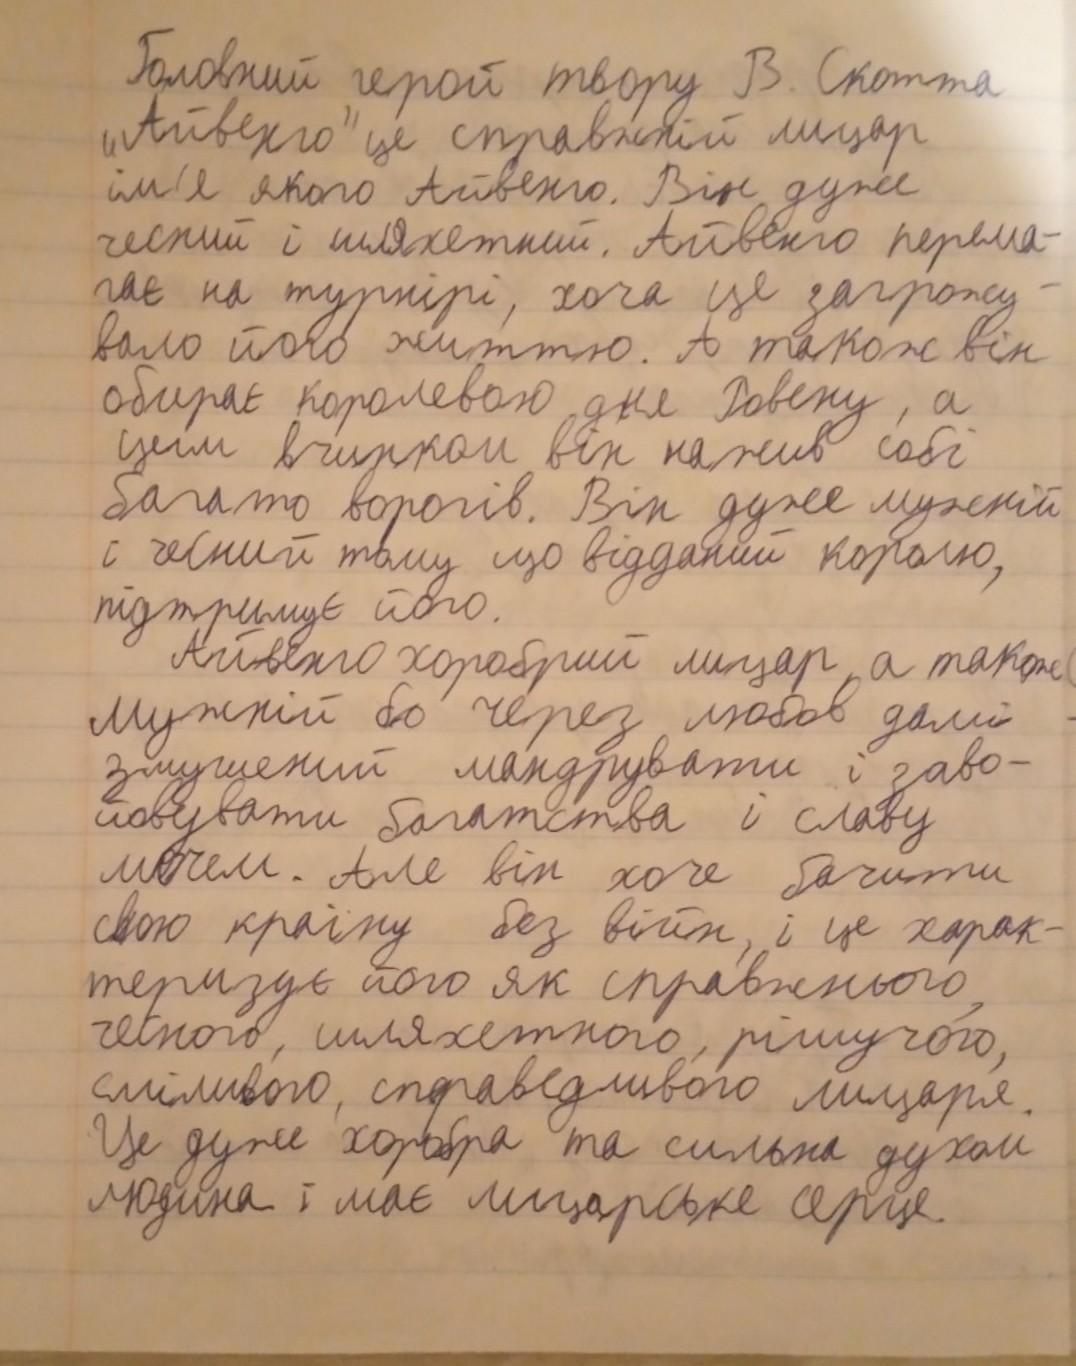 Головний герой твору В. Скотта
„Айвенго" це справжній лицар
ім'я якого Айвенго. Він дуже
чесний і шляхетний. Айвенго перема-
гає на турнірі, хоча це загрожу-
вало його життю. А також він
обирає королевою дня Ровену, а
цим вчинком він нажив собі
багато ворогів. Він дуже мужній
і чесний тому що відданий королю,
підтримує його.
Айвенго хоробрий лицар, а також
мужній бо через любов дами
змушений мандрувати і заво-
йовувати багатства і славу
мечем. Але він хоче бачити
свою країну без війн, і це харак-
теризує його як справжнього,
чесного, шляхетного, рішучого,
сміливого, справедливого лицаря.
Це дуже хоробра та сильна духом
людина і має лицарське серце.